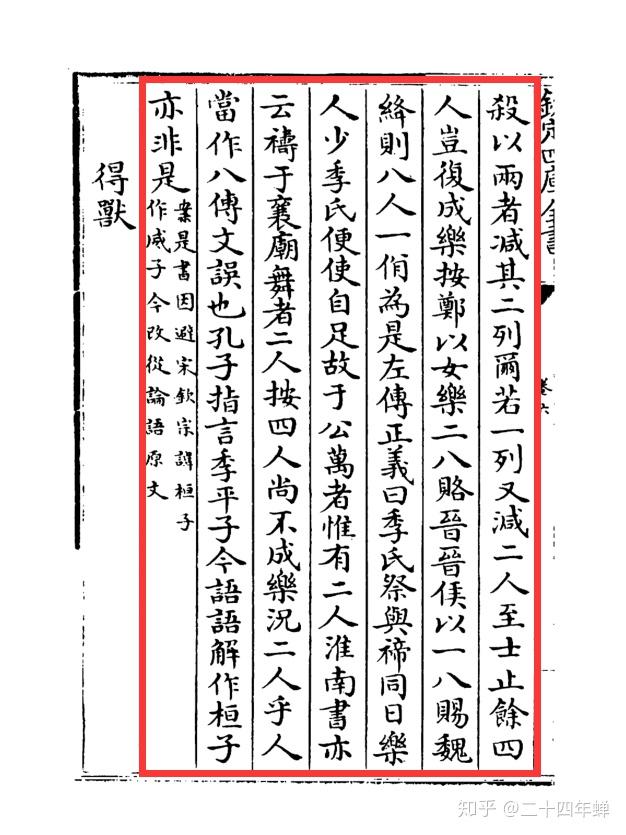 欽定四庫全書
卷六
殺以兩者减其二列爾若一列又減二人至士止餘四
人豈復成樂按鄭以女樂二八賂晉晉侯以一八賜魏
絳則八人一佾為是左傳正義曰季氏祭與禘同日樂
人少季氏便使自足故于公萬者惟有二人淮南書亦
云禱于襄廟舞者二人按四人尚不成樂況二人乎人
當作八傳文誤也孔子指言季平子今語語解作桓子
亦非是
案是書因避宋欽宗諱桓子
作威子今改從論語原文
得獸
知乎 @二十四年蝉